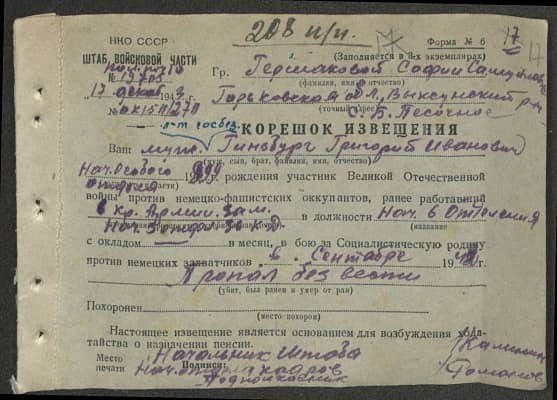 208 п/п.
17
НКО СССР
Форма № 6
ШТАБ, ВОЙСКОВОЙ ЧАСТИ
(Заполняется в 3-х экземплярах)
№ 19703
Гр. Гершаковой Софии
(фамилия, имя, отчество)
17 декаб 1943 г.
Горьковская обл., Выксунский р-н
(точный адрес)
С. Б. Песочное
КОРЕШОК ИЗВЕЩЕНИЯ
Ваш муж Гинзбург Григорий Иванович
(муж, сын, брат, фамилия, имя, отчество)
Нач. Особого 1899 г. рождения участник Великой Отечественной
отдела
войны против немецко-фашистских оккупантов, ранее работавший
в кр. Армии. Зам. в должности Нач. 6 Отделения
(название
с окладом в месяц, в бою за Социалистическую родину
против немецких захватчиков Сентябре 194 г.
Пропал без вести
(убит, был ранен и умер от ран)
Похоронен
(место похорон)
Настоящее извещение является основанием для возбуждения хода-
тайства о назначении пенсии.
Место Начальник Штаба
печати Подписи:
Нач. отдела кадров
Подполковник